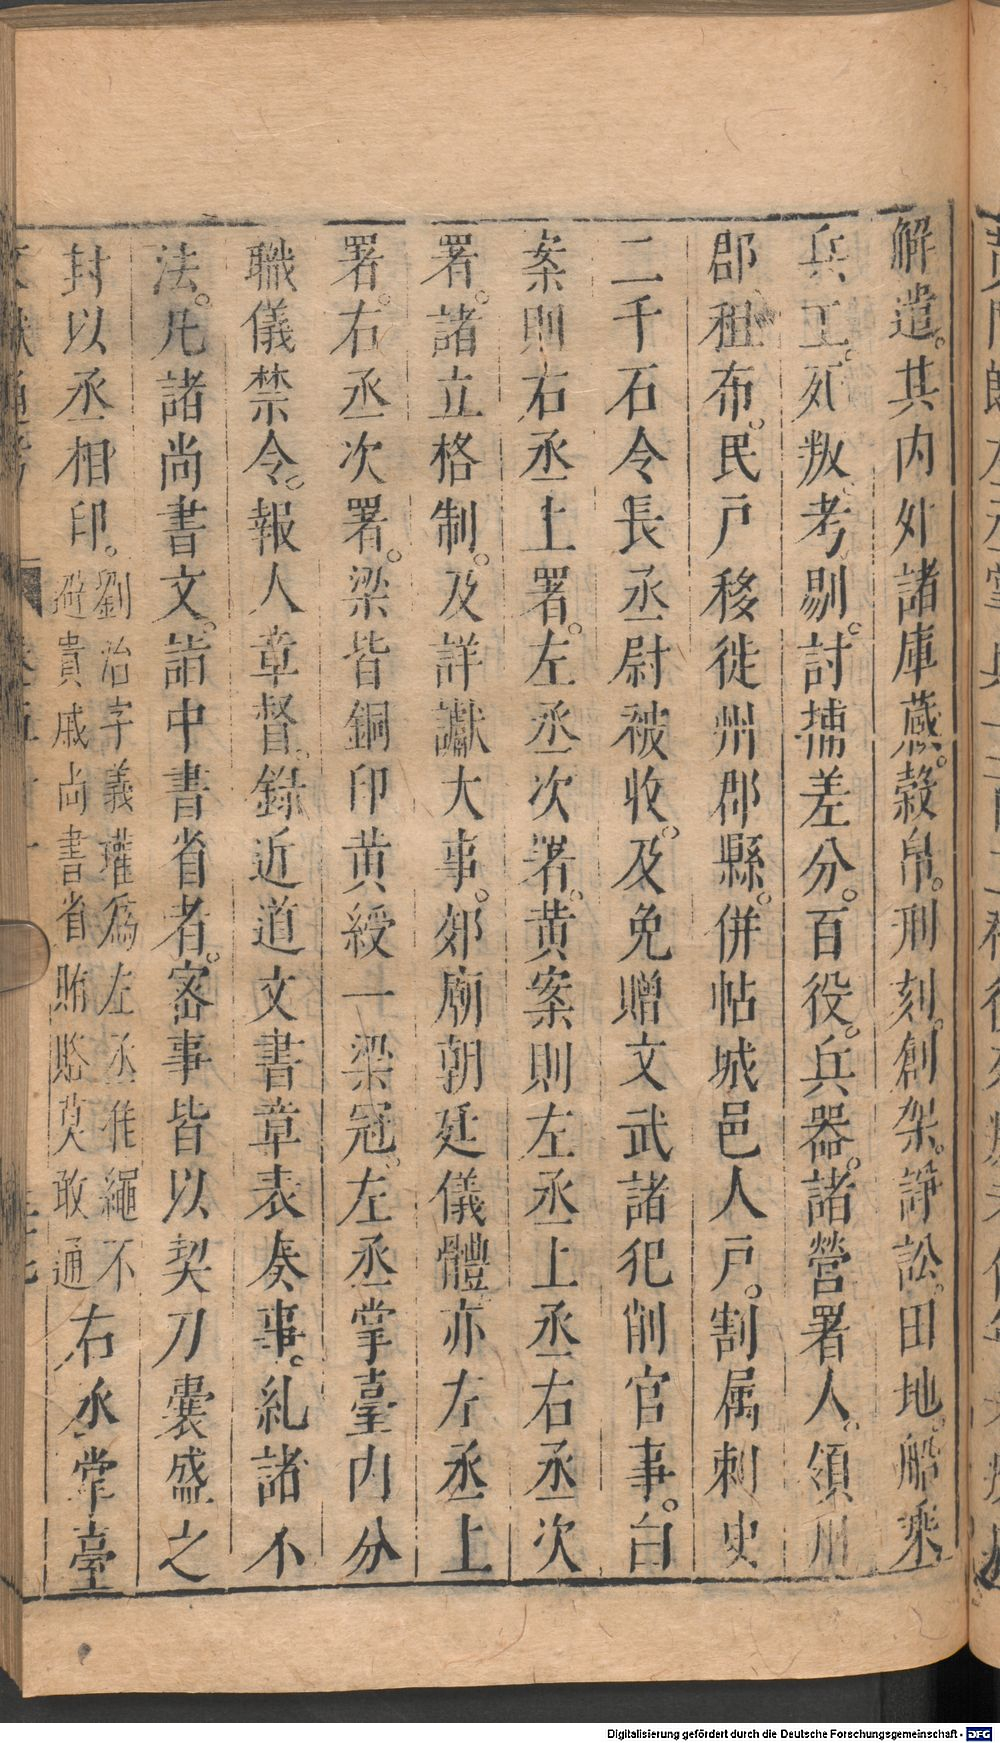 解遣。其内外諸庫藏。穀帛。刑刻。創架。諍訟。田地。船乘
兵工。死叛。考剔。討捕差分。百役。兵器。諸營署人。領州
郡租布。民戶移徙州郡縣。併帖城邑人戶。割属刺史
二千石令長丞尉被收。及免贈文武諸犯削官事。白
案則右丞上署。左丞次署。黄案則左丞上丞右丞次
署。諸立格制。及詳讞大事。郊廟朝廷儀體亦左丞上
署。右丞次署。梁皆銅印黄綬一梁冠。左丞掌臺内分
職儀禁令。報人章督。録近道文書章表奏事。糺諸不
法。凡諸尚書文。詣中書省者。密事皆以契刀囊盛之
封以丞相印。
劉治字義瓘爲左丞准繩不
避貴戚尚書省賄賂莫敢通
右丞掌臺
Digitalisierung gefördert durch die Deutsche Forschungsgemeinschaft - DFG